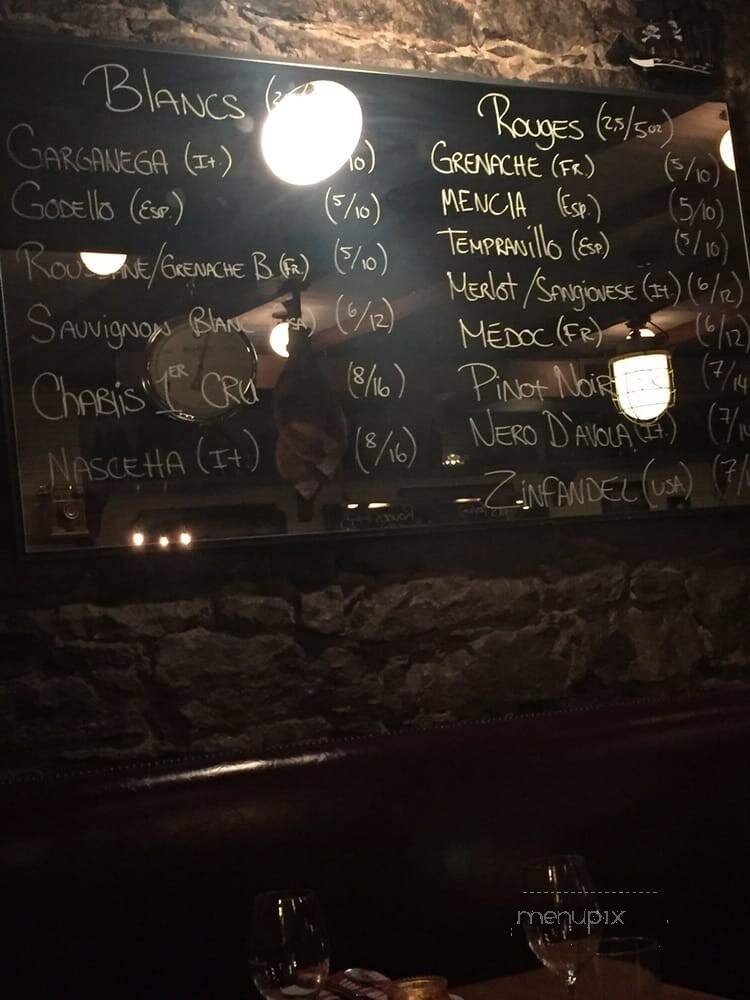 Blancs
Garganega (It.)
Godello (Esp.) (5/10)
Grenache B (Fr.) (5/10)
Sauvignon Blanc (6/12)
Chablis 1er Cru (8/16)
Nascetta (It.) (8/16)
Rouges (2,5/5oz)
Grenache (Fr.) (5/10)
Mencia (Esp.) (5/10)
Tempranillo (Esp) (5/10)
Merlot/Sangiovese (It.) (6/12)
Médoc (Fr) (6/12)
Pinot Noir
Nero D'Avola (It.)
Zinfandel (USA)
menupix